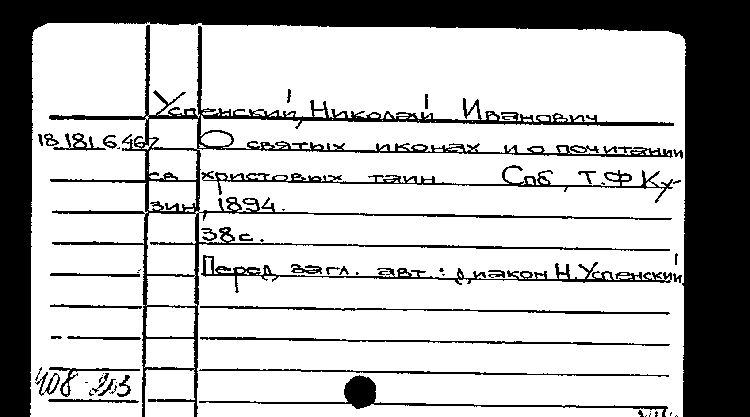 Успенский, Николай Иванович
18.181.6.467 О святых иконах и о почитании
св христовых таин Спб, Т.Ф Ку-
зин, 1894.
38с.
Перед загл. авт.: диакон Н.Успенский
408-203